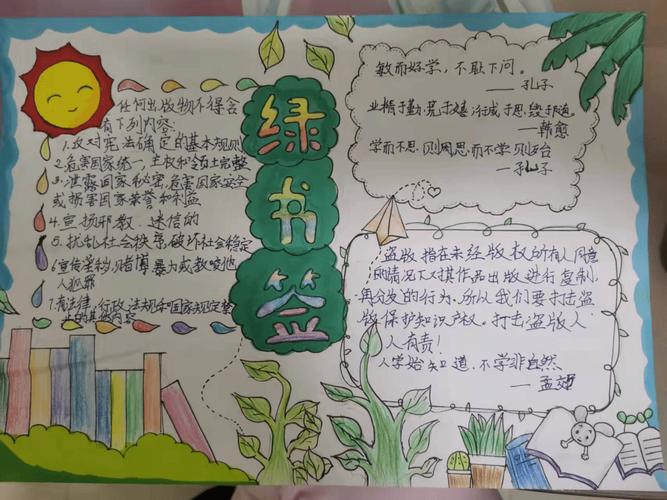 任何出版物不得含
有下列内容:
1.反对宪法确定的基本规则
2.危害国家统一,主权和领土完整
3.泄露国家秘密,危害国家安全
或损害国家荣誉和利益
4.宣扬邪教、迷信的
5.扰乱社会秩序,破坏社会稳定
6宣传淫秽,赌博暴力或教唆他
人犯罪
7.有法律,行政,法规和国家规定禁
止的其他内容
绿
书
签
敏而好学,不耻下问。
——孔子
业精于勤,荒于嬉,行成于思,毁于随。
——韩愈
学而不思,则罔思而不学,则殆
——孔子
盗版指在未经版权所有人同意
的情况下对其作品出版进行复制,
再分发的行为,所从我们要打击盗
版保护知识产权。打击盗版人
人有责!
人学始知道,不学非自然
——孟郊